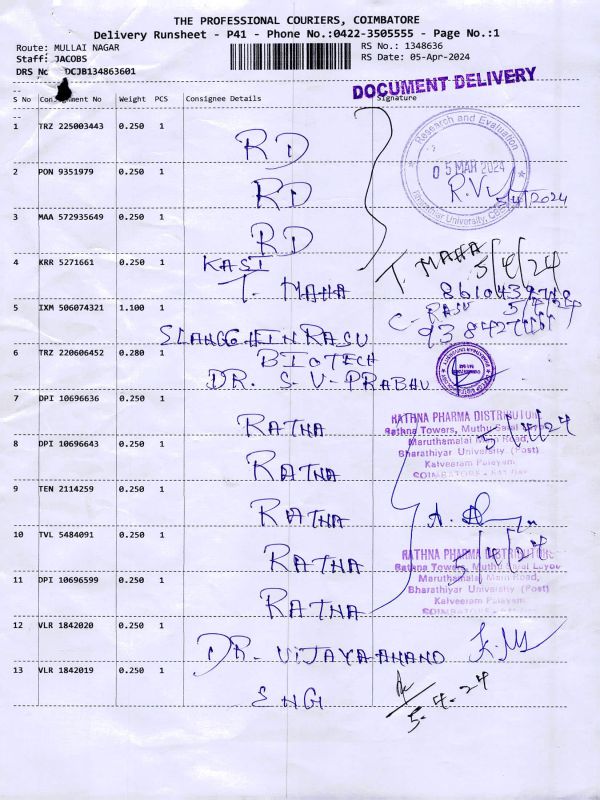 THE PROFESSIONAL COURIERS, COIMBATORE
Delivery Runsheet - P41 - Phone No.:0422-3505555 - Page No.:1
Route: MULLAI NAGAR
RS No.: 1348636
Staff: JACOBS
RS Date: 05-Apr-2024
DRS No DCJB134863601
DOCUMENT DELIVERY
S No Consignment No Weight PCS Consignee Details Signature
1 TRZ 225003443 0.250 1 RD
Research and Evaluation
05 MAR 2024
Bharathiar University,
5/4/2024
2 PON 9351979 0.250 1 RD
3 MAA 572935649 0.250 1 RD
4 KRR 5271661 0.250 1 KASI
T. MAHA T. MAHA 5/4/24
5 IXM 506074321 1.100 1
C. RASU 5/4/24
6 TRZ 220606452 0.280 1 BIOTECH
DR. S. V. PRABHU
7 DPI 10696636 0.250 1 RATNA
RATHNA PHARMA DISTRIBUTORS
Rathna Towers, Muthu
5/4/24
Maruthamalai Main Road,
Bharathiyar University (Post)
Kalveeram Palayam
COIMBATORE
8 DPI 10696643 0.250 1 RATNA
9 TEN 2114259 0.250 1 RATNA
10 TVL 5484091 0.250 1 RATNA
RATHNA PHARMA DISTRIBUTORS
5/4/24
Rathna Towers, Muthu
Maruthamalai Main Road,
Bharathiyar University (Post)
Kalveeram Palayam
COIMBATORE
11 DPI 10696599 0.250 1 RATNA
12 VLR 1842020 0.250 1 DR. VIJAYA ANAND
13 VLR 1842019 0.250 1 ENG
5-4-24